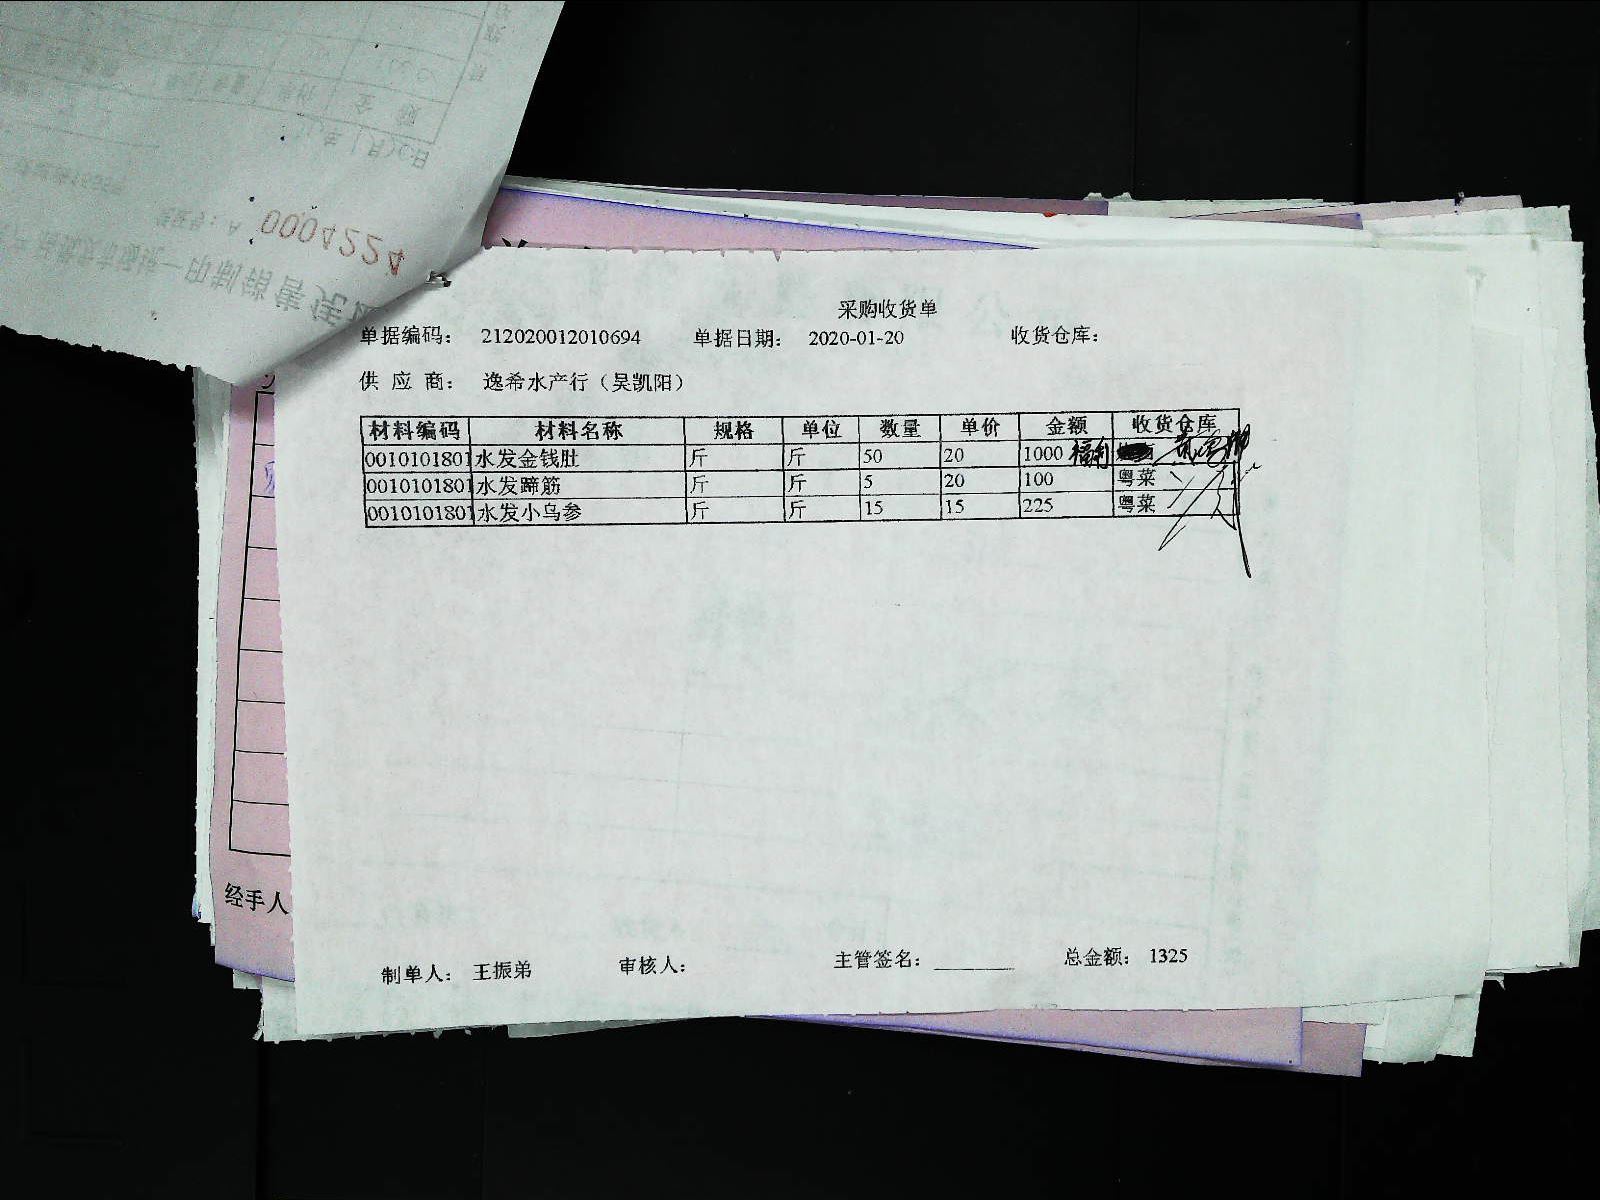 0004224
采购收货单
单据编码: 212020012010694 单据日期: 2020-01-20 收货仓库:
供 应 商: 逸希水产行（吴凯阳）
材料编码 材料名称 规格 单位 数量 单价 金额 收货仓库
0010101801 水发金钱肚 斤 斤 50 20 1000 福利
0010101801 水发蹄筋 斤 斤 5 20 100 粤菜
0010101801 水发小乌参 斤 斤 15 15 225 粤菜
经手人
制单人: 王振弟 审核人: 主管签名: ______ 总金额: 1325